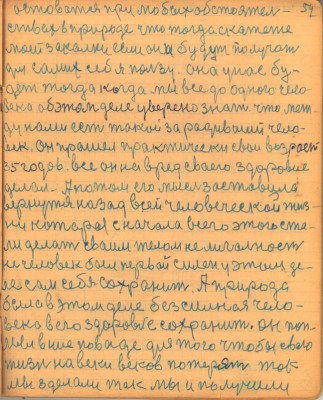 54
остоватся при любых обстоятел-
ствах в природе что тогда скажете
моей закалки если она будут получат
для самих себя ползу. она у нас бу-
дет тогда когда мы все до одного чело-
века об этом деле уверено знат что меж-
ду нами есть такой зародивший чело-
век. Он прошел практически свои возраст
35 годов. все он на вред своего здоровие
делал. А потом его мысел заставила
вернутся назад всей человеческой жиз-
ни которая сначала всего этого ста-
ли делат своим телом немиголност
и человек был первый силен у этим де-
ле сам себя сохранит. А природа
была в этом деле безсилная чело-
века в его здоровие сохранит. Он
вниз по ваде для того чтобы свою
жизн на веки веков потерят так
мы зделали так мы и получили